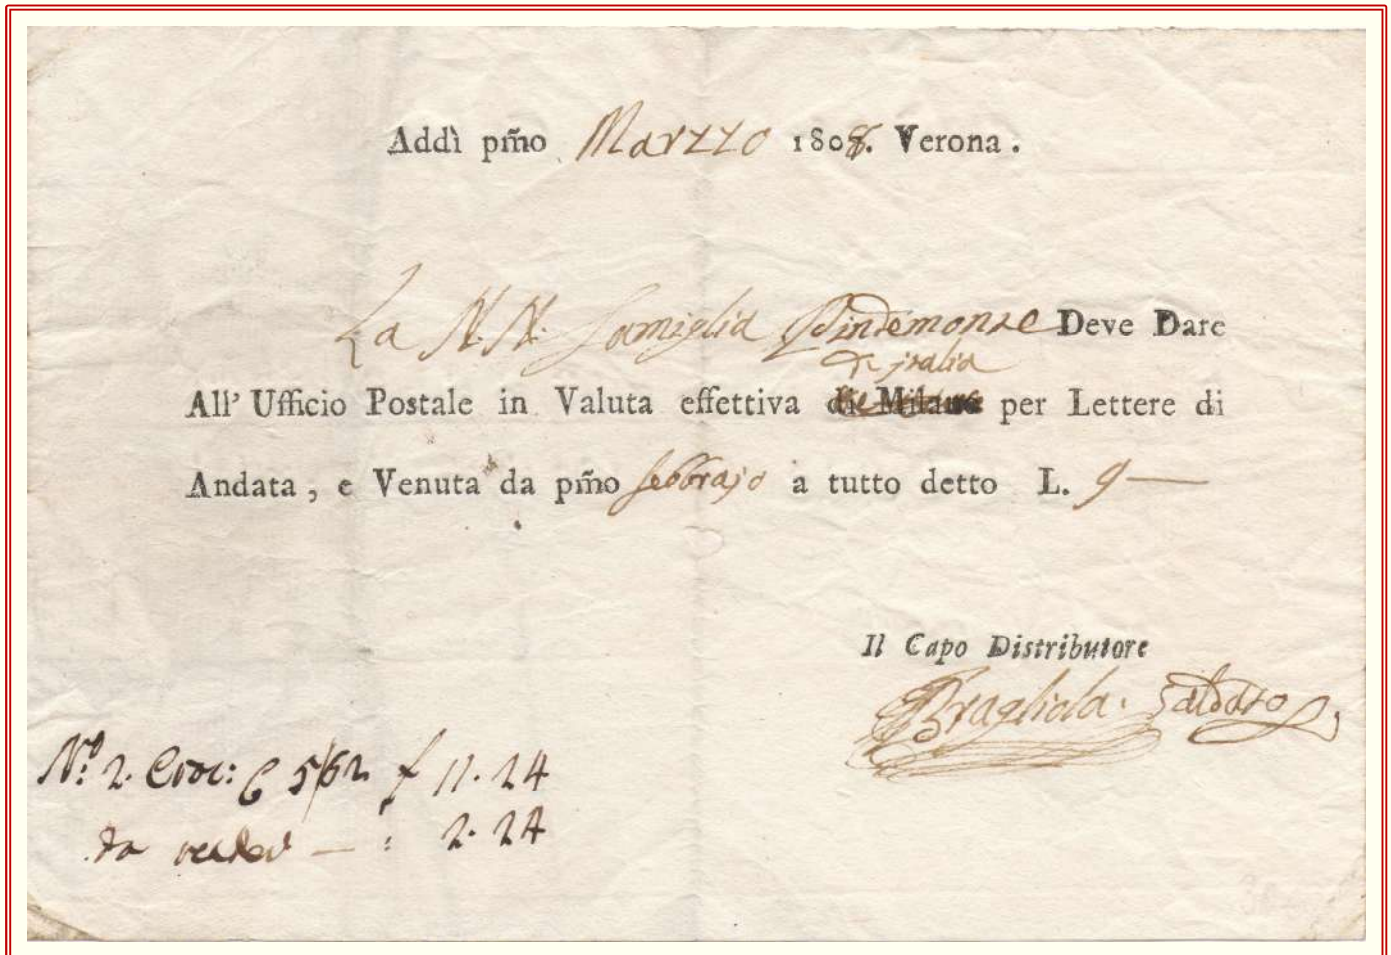 Addì pm̃o Marzzo 1808. Verona.
La N.N. Famiglia Pindemonte Deve Dare
di jtalia
All' Ufficio Postale in Valuta effettiva di Milano per Lettere di
Andata, e Venuta da pm̃o febbrajo a tutto detto L. 9 —
Il Capo Distributore
Bragliola. Saldato
N.º 2. Croc: 5/62 f 11.24
da — : 2.24